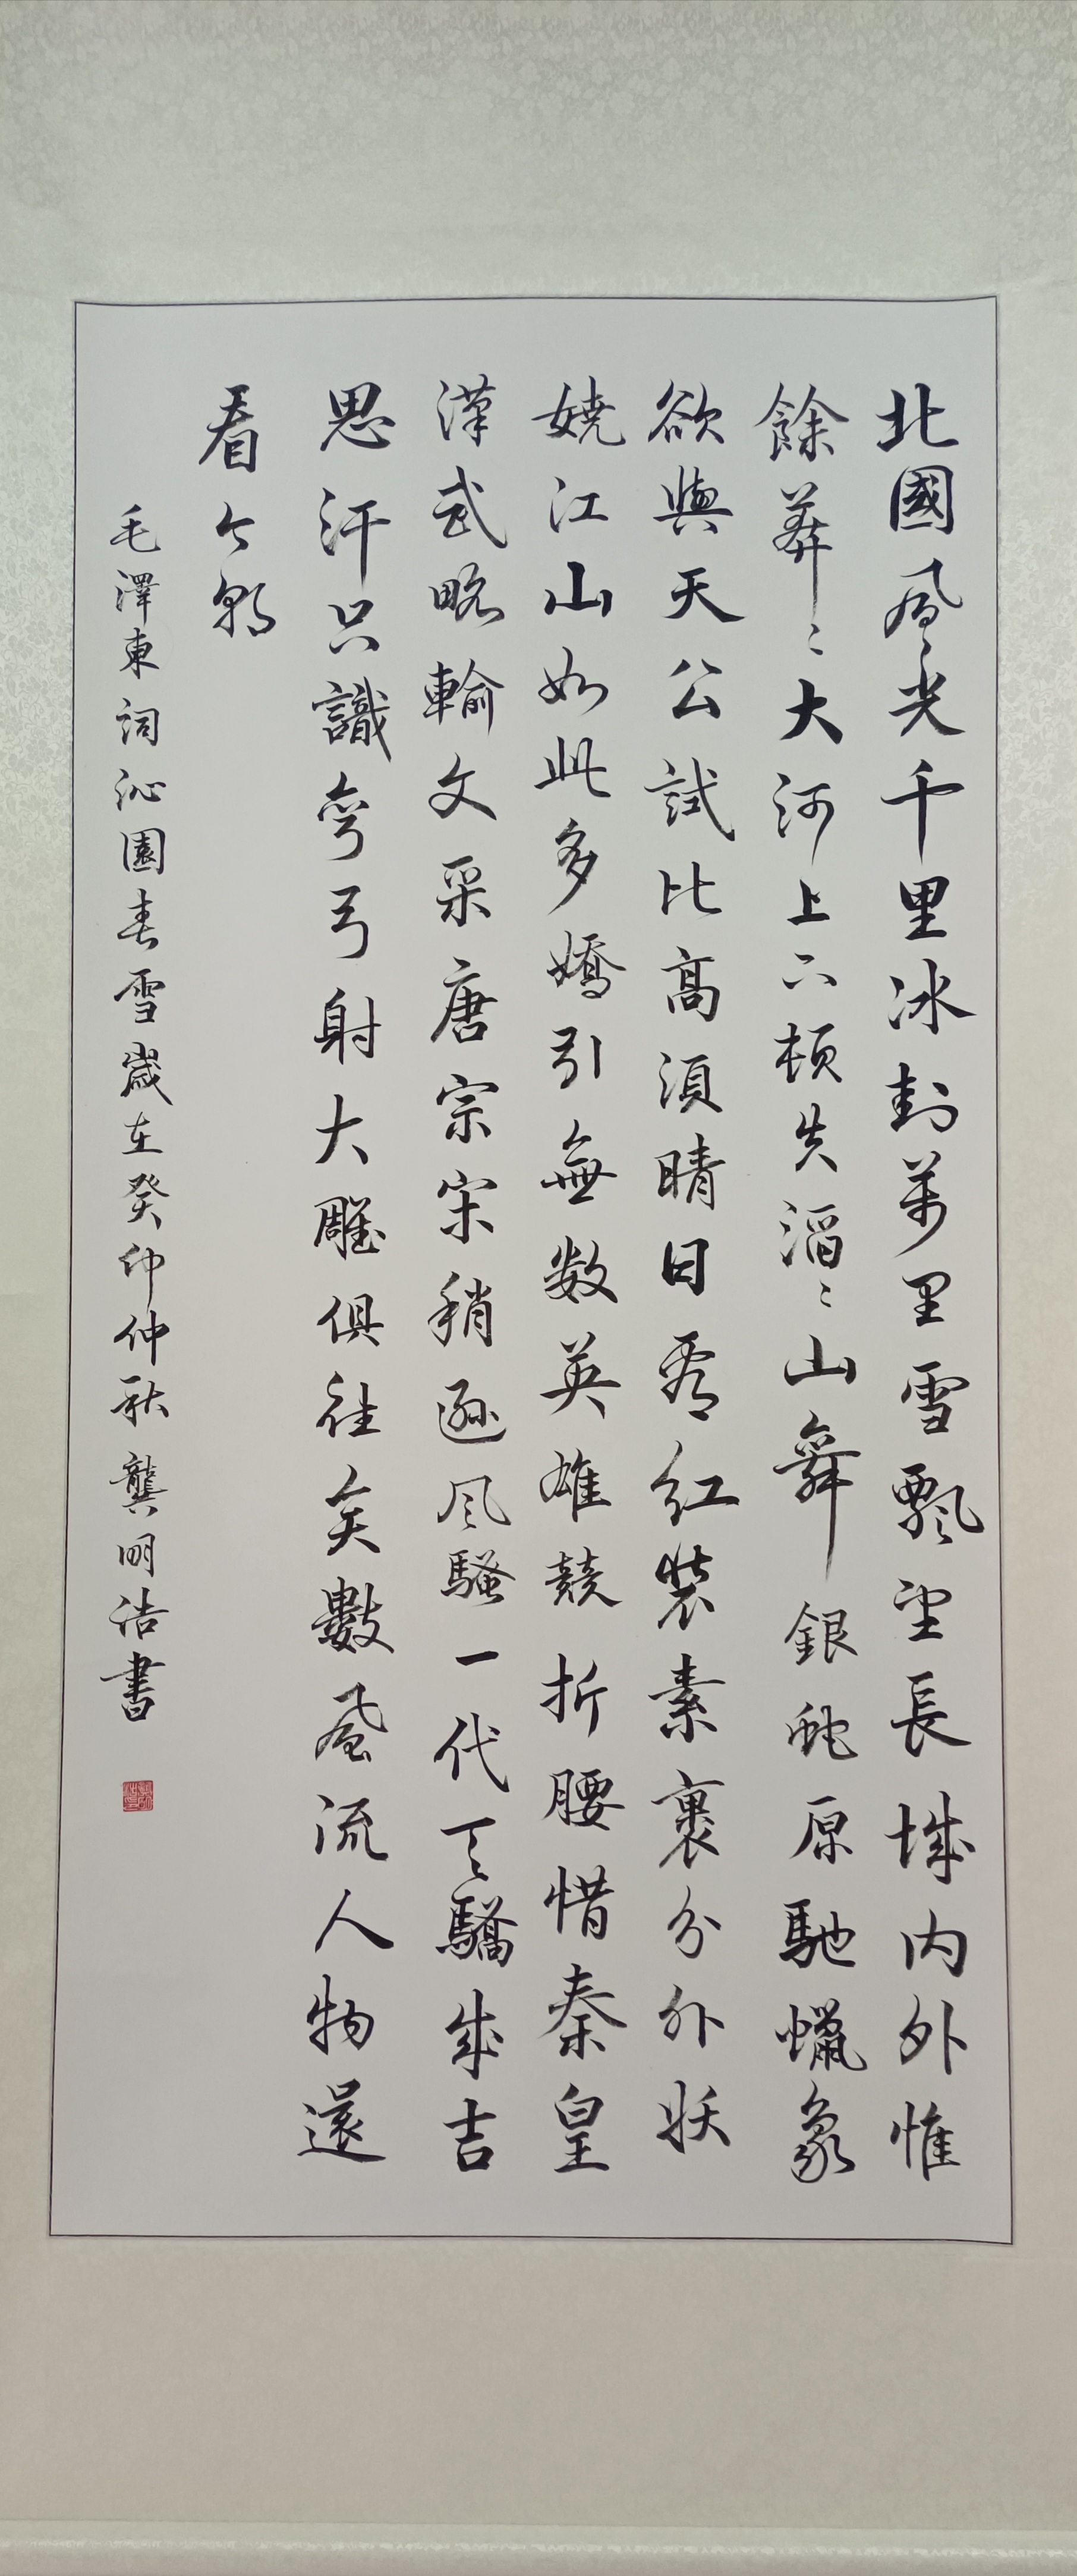 北國風光千里冰封萬里雪飄望長城內外惟
餘莽〻大河上下頓失滔〻山舞銀蛇原馳蠟象
欲與天公試比高須晴日看紅裝素裹分外妖
嬈江山如此多嬌引無数英雄競折腰惜秦皇
漢武略輸文采唐宗宋稍遜风騷一代天驕成吉
思汗只識彎弓射大雕俱往矣數風流人物還
看今朝
毛澤東詞沁園春雪歲在癸卯仲秋龔明浩書